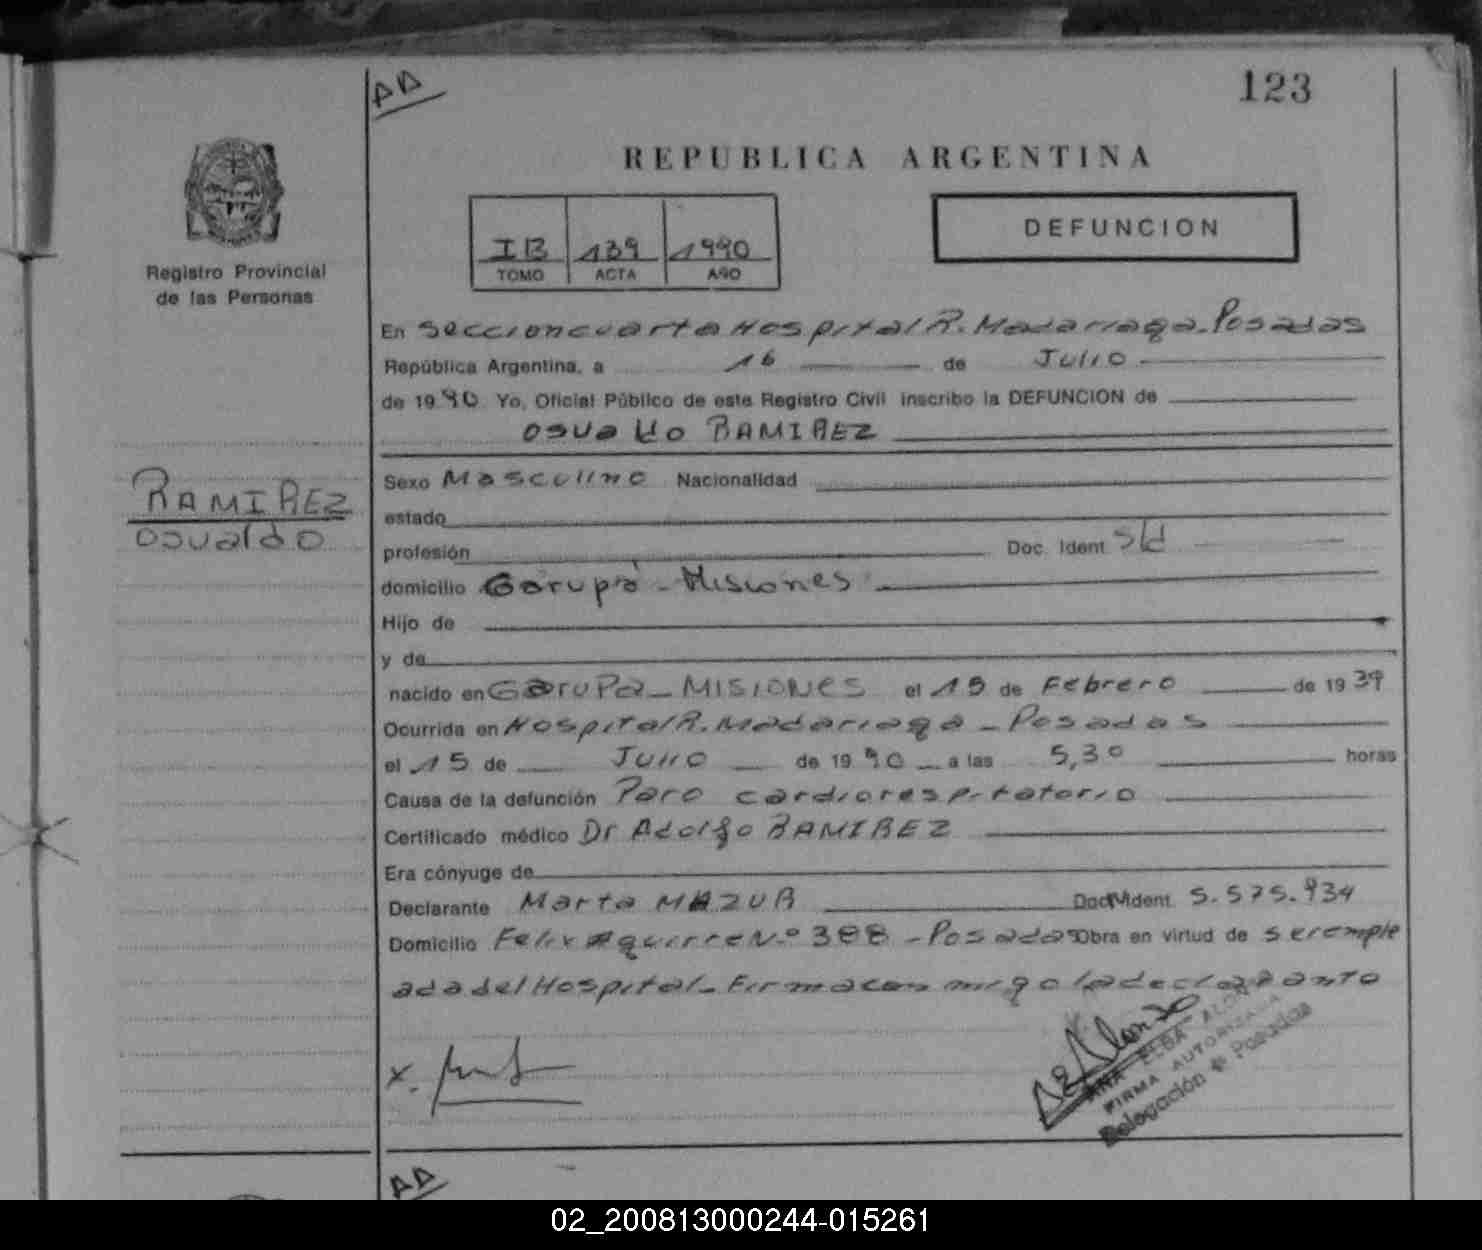 AA
123
REPUBLICA ARGENTINA
Registro Provincial
de las Personas
IB 139 1990
TOMO ACTA AÑO
DEFUNCION
En Seccion cuarta Hospital R. Madariaga - Posadas
República Argentina, a 16 de Julio
de 1990 Yo, Oficial Público de este Registro Civil inscribo la DEFUNCION de
Osvaldo RAMIREZ
RAMIREZ
Osvaldo
Sexo Masculino Nacionalidad
estado
profesión Doc. Ident. S/d
domicilio Garupá - Misiones
Hijo de
y de
nacido en Garupa - MISIONES el 15 de Febrero de 1939
Ocurrida en Hospital R. Madariaga - Posadas
el 15 de Julio de 1990 a las 5,30 horas
Causa de la defunción Paro cardiorespiratorio
Certificado médico Dr Adolfo RAMIREZ
Era cónyuge de
Declarante Marta MAZUR Doc. Ident. 5.575.934
Domicilio Felix Aguirre N.º 388 - Posadas Obra en virtud de ser emple
ada del Hospital - Firma con migo la declarante
x.
ANA ELBA ALON
FIRMA AUTORIZADA
Delegación Posadas
AA
02_200813000244-015261